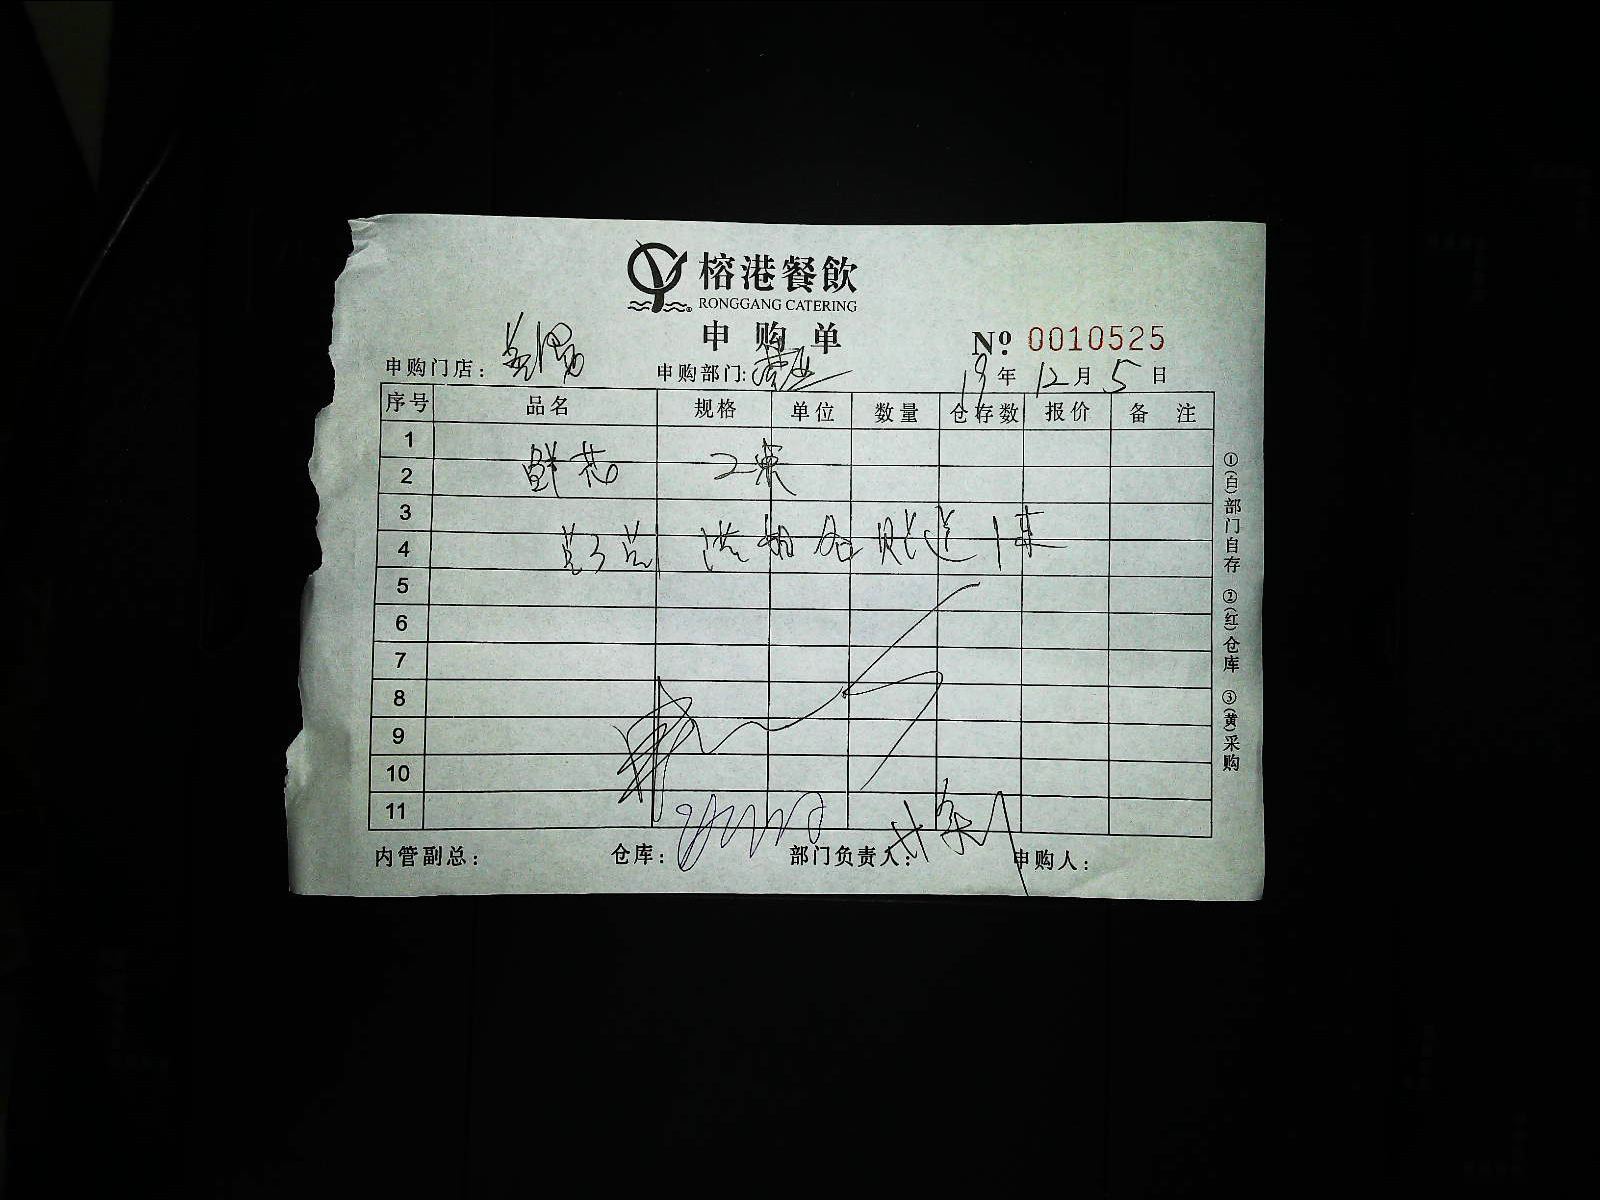 榕港餐飲
RONGGANG CATERING
申购单
№ 0010525
申购门店： 申购部门: 营业 19 年 12 月 5 日
序号 品名 规格 单位 数量 仓存数 报价 备 注
1
2 鲜花 2束
3
4 赠送1束
5
6
7
8
9
10
11
内管副总： 仓库： 部门负责人： 申购人：
①(白)部门自存 ②(红)仓库 ③(黄)采购